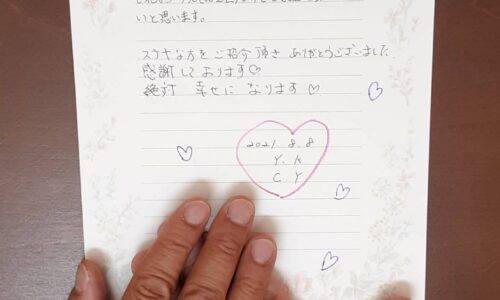 いと思います。
ステキな方をご紹介頂き ありがとうございました
感謝しております♡
絶対 幸せに なります♡
2021 8.8
Y.K
C.Y